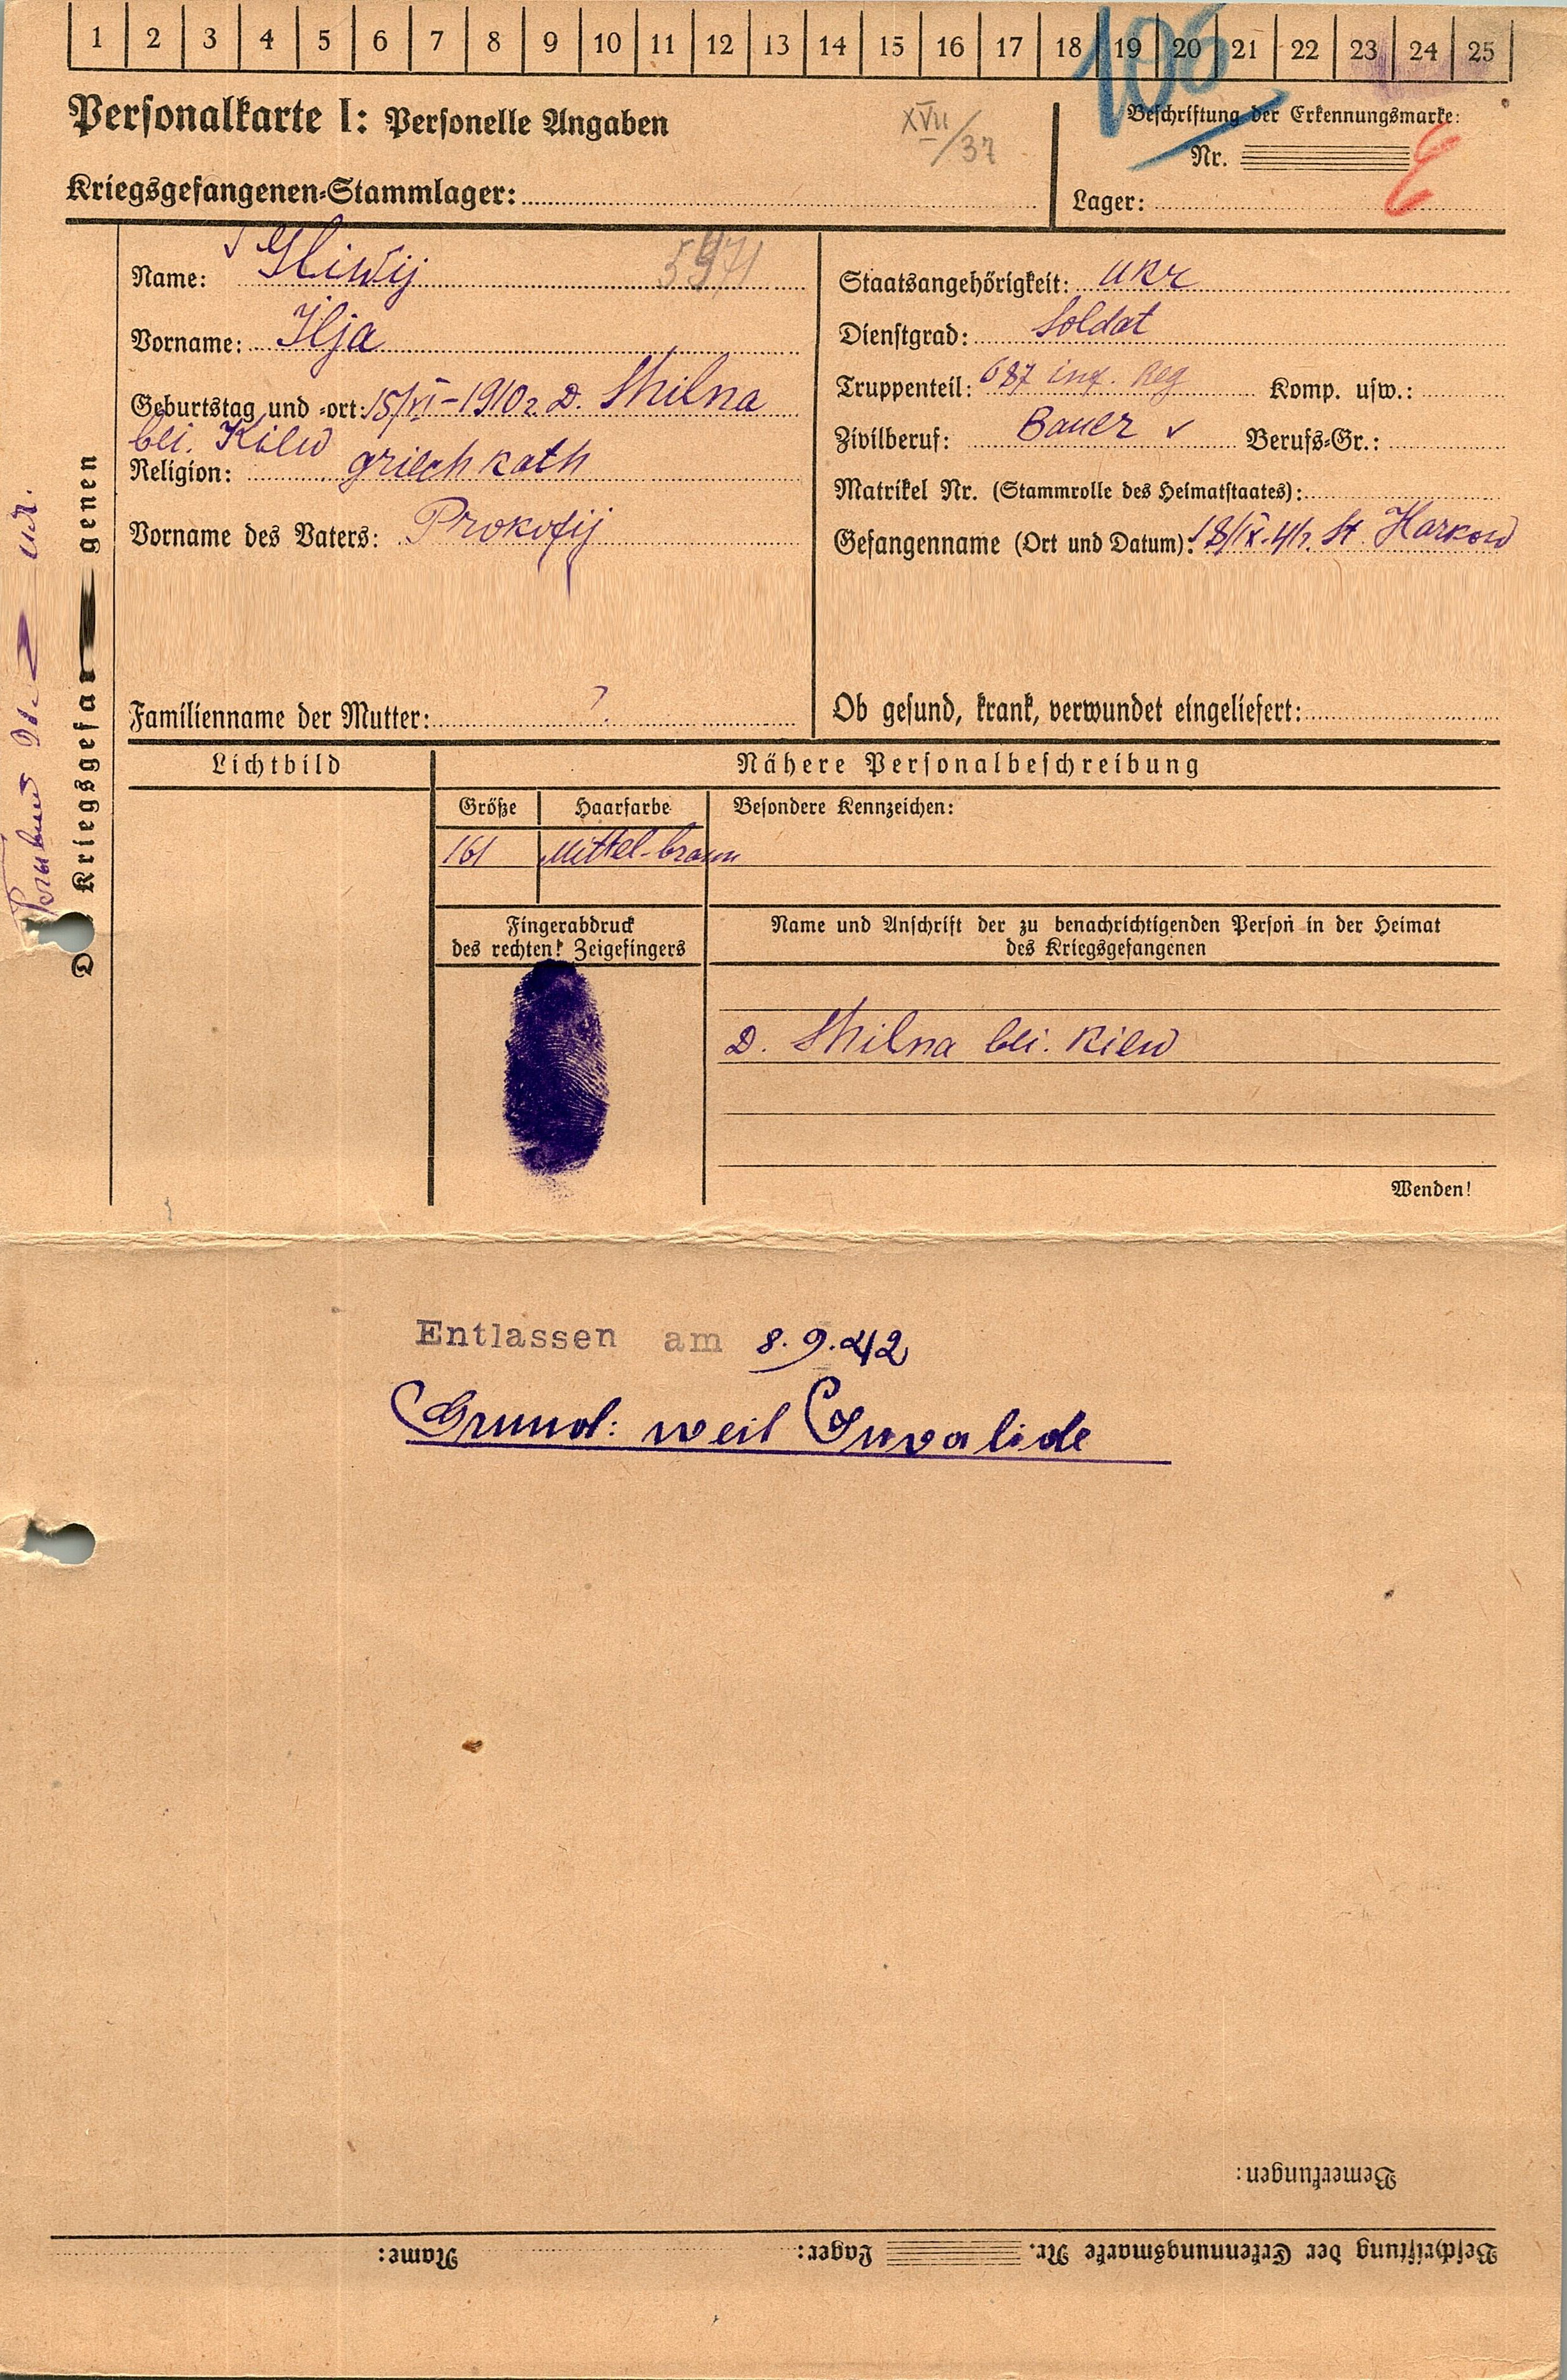 1 2 3 4 5 6 7 8 9 10 11 12 13 14 15 16 17 18 19 20 21 22 23 24 25
106
Personalkarte I: Personelle Angaben
XVII/37
Beschriftung der Erkennungsmarke:
Nr.
Kriegsgefangenen-Stammlager:
Lager:
Name:
5971
Staatsangehörigkeit: ukr
Vorname: Ilja
Dienstgrad: Soldat
Geburtstag und -ort: 15/VI-1910 D. Shilna
bei. Kiew
Truppenteil: 687 inf. Reg Komp. usw.:
Religion: griech kath
Zivilberuf: Bauer Berufs-Gr.:
Matrikel Nr. (Stammrolle des Heimatstaates):
Vorname des Vaters: Prokofij
Gefangenname (Ort und Datum): 18/IX-41 St. Harkow
Familienname der Mutter: ?
Ob gesund, krank, verwundet eingeliefert:
Kriegsgefa genen
Lichtbild
Nähere Personalbeschreibung
Größe Haarfarbe Besondere Kennzeichen:
161 Mittel-braun
Fingerabdruck
des rechten! Zeigefingers
Name und Anschrift der zu benachrichtigenden Person in der Heimat
des Kriegsgefangenen
D. Shilna bei. Kiew
Wenden!
Entlassen am 8.9.42
Grund: weil Invalide
Bemerkungen:
Beschriftung der Erkennungsmarke Nr. Lager: Name: